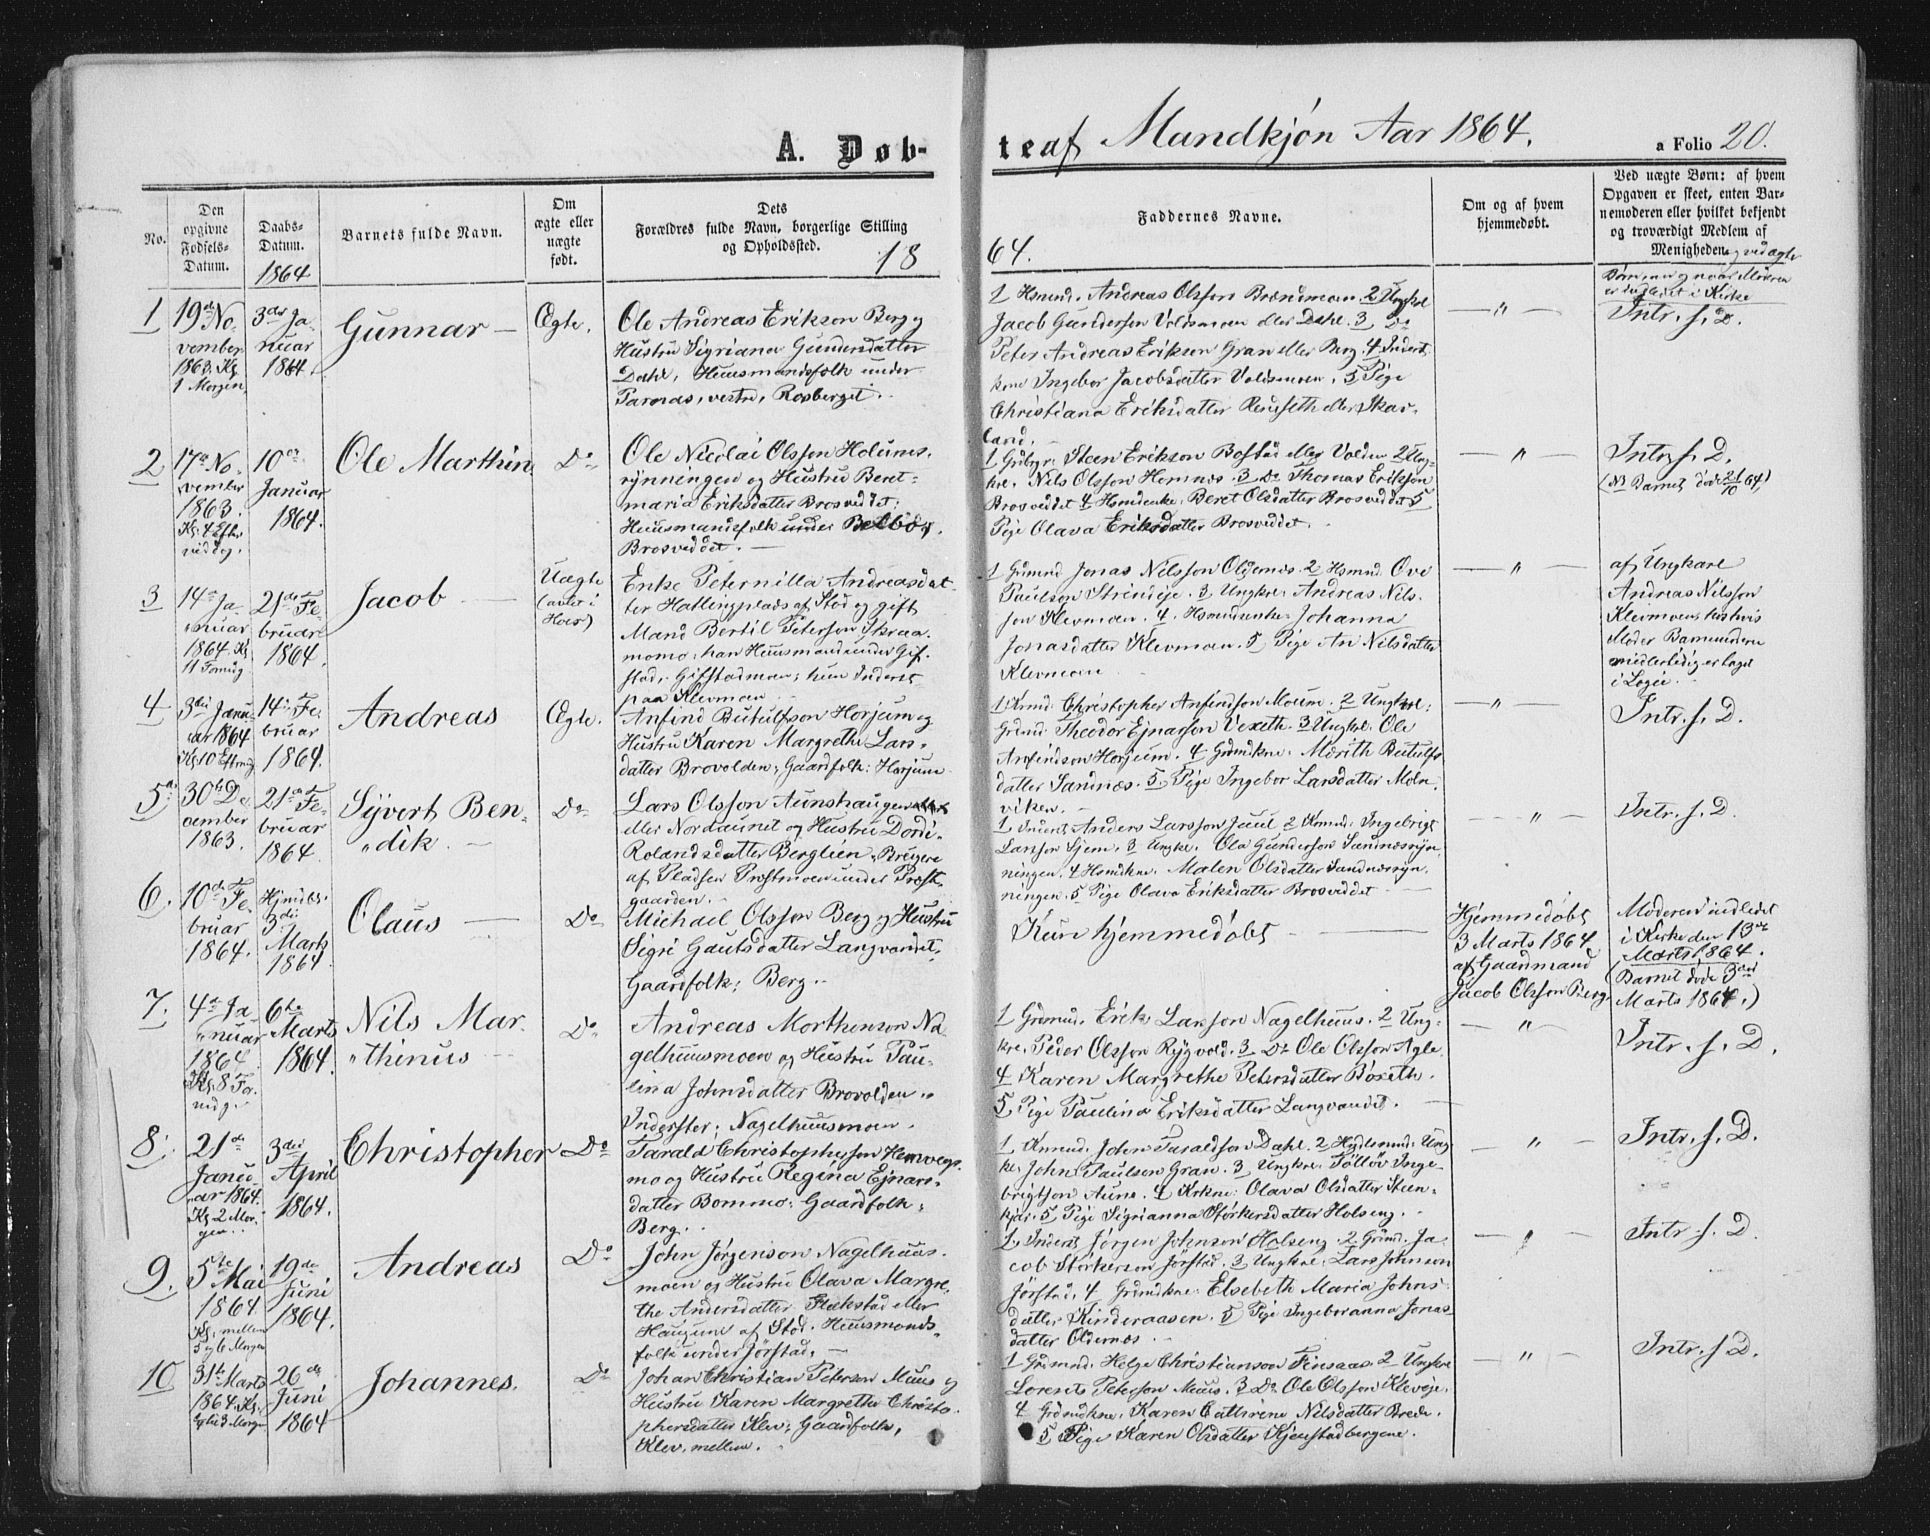 A. Døb-
te af Mandkjøn Aar 1864.
a Folio 20.
No.
Den opgivne Fødsels-Datum.
Daabs-Datum.
1864
Barnets fulde Navn.
Om ægte eller uægte født.
Dets
Forældres fulde Navn, borgerlige Stilling
og Opholdssted.
18
64.
Faddernes Navne.
Om og af hvem
hjemmedøbt.
Ved uægte Børn: af hvem
Opgaven er skeet, enten Bar-
nemoderen eller hvilket bekjendt
og troværdigt Medlem af
Menigheden og ved ægte
Børn naar Moderen
er indledet i Kirke
1
19de No-
vember
1863. Kl.
1 Morgen
3die Ja-
nuar
1864.
Gunnar —
Ægte.
Ole Andreas Erikson Berg og
Hustru Sigriana Gundersdatter
Dahl, Huusmandsfolk under
Parnas, vestre, Rosberget.
1 Hsmnd. Andreas Olsson Brændmoen. 2 Ungkrl
Jacob Gunderson Voldsmoen eller Dahl. 3 Do
Peter Andreas Erikson Gran eller Berg. 4 Inderst
kone Ingebor Jacobsdatter Voldsmoen. 5 Pige
Christiana Eriksdatter Renseth eller Skar-
land.
— " —
Intr. f. D.
2
17de No-
vember
1863.
Kl. 4 Efter
middag.
10de
Januar
1864.
Ole Marthin
Do
Ole Nicolai Olsson Holums-
rynningen og Hustru Beret-
maria Eriksdatter Brosveddet.
Huusmandsfolk under Belbo,
Brosveddet. —
1 Grdbgr. Steen Erikson Bostad eller Volden 2 Ung-
kre. Nils Olsson Hemnes. 3 Do Thomas Erikson
Brosveddet 4 Hsmdenke. Beret Olsdatter Brosveddet 5
Pige Olava Eriksdatter Brosveddet.
— " —
Intr. f. D.
(NB Barnet døde 21/10 64)
3
14de Ja-
nuar
1864. Kl.
11 Formdg
21de Fe-
bruar
1864.
Jacob —
Uægte
(avlet i
Hoer)
Enke Peternilla Andreasdat-
ter Hallingplads af Stod og gift
Mand Bertil Peterson Skraa-
momo; han Huusmand under Gif-
stad, Gifstadmoen; hun Inderst
paa Klevmoen
1 Grdmnd Jonas Nilsson Oldernes. 2 Hsmnd. Ove
Paulson Strindeje. 3 Ungkre. Andreas Nils-
son Klevmoen. 4. Hsmdsenke. Johanna
Jonasdatter Klevmoen. 5 Pige An Nilsdatter
Klevmoen
— " —
af Ungkarl
Andreas Nilsson
Klevmoen, hos hvis
Moder Barnemoderen
midlertidig er taget
i Logie.
4
3die Janu-
ar 1864
Kl. 10 Eftmdg
14de Fe-
bruar
1864.
Andreas
Ægte.
Anfind Butulfson Horjum og
Hustru Karen Margrethe Lars-
datter Brovolden; Gaardfolk: Horjum
1 Krmd. Christopher Anfindson Moum. 2 Ungkre:
Grdmd. Theodor Ejnarson Vexeth. 3 Ungkre: Ole
Anfindson Horjum. 4 Grdmdkne. Merith Butulfs-
datter Sandnæs. 5 Pige Ingebor Larsdatter Moln-
viken.
— " —
Intr. f. D.
5
30te De-
cember
1863.
21de Fe-
bruar
1864.
Syvert Ben-
"dik. —
Do
Lars Olsson Aunshaugen
eller Nordaunet og Hustru Dordi-
Rolandsdatter Berglien. Brugere
af Pladsen Præstmoen under Præst-
gaarden.
1 Inderst Anders Larsson Juul 2 Krmd. Ingebrigt
Larsson Sjem. 3 Ungkre. Ola Gunderson Sandnæsryn-
ningen. 4 Hsmdkne. Malen Olsdatter Sandnæsryn-
ningen. 5 Pige Olava Eriksdatter Brosveddet —
— " —
Intr. f. D.
6.
10de Fe-
bruar
1864.
Hjmdøbt
3die
Marts
1864
Olaus —
Do
Michael Olsson Berg og Hustru
Sigri Gautsdatter Langvandet,
Gaardfolk; Berg.
Kun hjemmedøbt —
Hjemmedøbt
3 Marts 1864
af Gaardmand
Jacob Olsson Berg.
Moderen indledet
i Kirke den 13de
Marts 1864.
(Barnet døde 3die
Marts 1864.)
7.
4de Ja-
"nuar
1864
Kl. 8 For-
mdg
6te
Marts
1864.
Nils Mar-
"thinus —
Do
Andreas Morthenson Na-
gelhuusmoen og Hustru Pau-
lina Johnsdatter Brovolden.
Inderster; Nagelhuusmoen.
1 Grdmnd. Erik Larsson Nagelhuus. 2 Ung-
kre. Peder Olsson Rygvold. 3 Do Ole Olsson Agle
4 Karen Margrethe Petersdatter Boxeth.
5 Pige Paulina Eriksdatter Langvandet. —
— " —
Intr. f. D.
8.
21de
Janu-
ar 1864.
Kl. 2 Mor-
gen.
3die
April
1864.
Christopher
Do
Tarald Christopherson Hemvegs-
mo og Hustru Regina Ejnars-
datter Bommo; Gaardfolk;
Berg.
1 Krmnd. John Taraldson Dahl. 2 Ung-
kre. John Paulson Gran. 3 Ungkre. Tolløv Inge-
brigtson Aune. 4 Krkne: Olava Olsdatter Steen-
kjær. 5 Pige Sigrianna Størkersdatter Holseng.
— " —
Intr. f. D.
9.
5te
Mai
1864.
Kl. mellem
5 og 6 Morgen
19de
Juni
1864.
Andreas
Do
John Jørgenson Nagelhuus-
moen og Hustru Olava Margre-
the Andersdatter Flekstad eller
Haugum af Stod. Huusmands-
folk under Jørstad, —
1 Inderst Jørgen Johnson Holseng. 2 Grdmd. Ja-
cob Størkerson Jørstad. 3 Ungkre: Lars Johnson
Jørstad, 4 Grdmdkne: Elsebeth Maria Johns-
datter Kinderaasen. 5 Pige Ingeboranna Jonas-
datter Oldernæs. —
— " —
Intr. f. D.
10
31te Marts
1864 Kl.
3 Morgen
26de
Juni
1864
Johannes.
Do
Johan Christian Peterson Muus og
Hustru Karen Margrethe Christo-
phersdatter Klev; Gaardfolk,
Klev, mellem.
1 Grdmnd: Helge Christianson Finsaas 2 Ungkre
Lorents Peterson Muus. 3 Do Ole Olsson Kleveje.
4 Grdmdkne. Karen Cathrine Nilsdatter Brede.
5 Pige Karen Olsdatter Kjenstadbergene.
— " —
Intr. f. D.